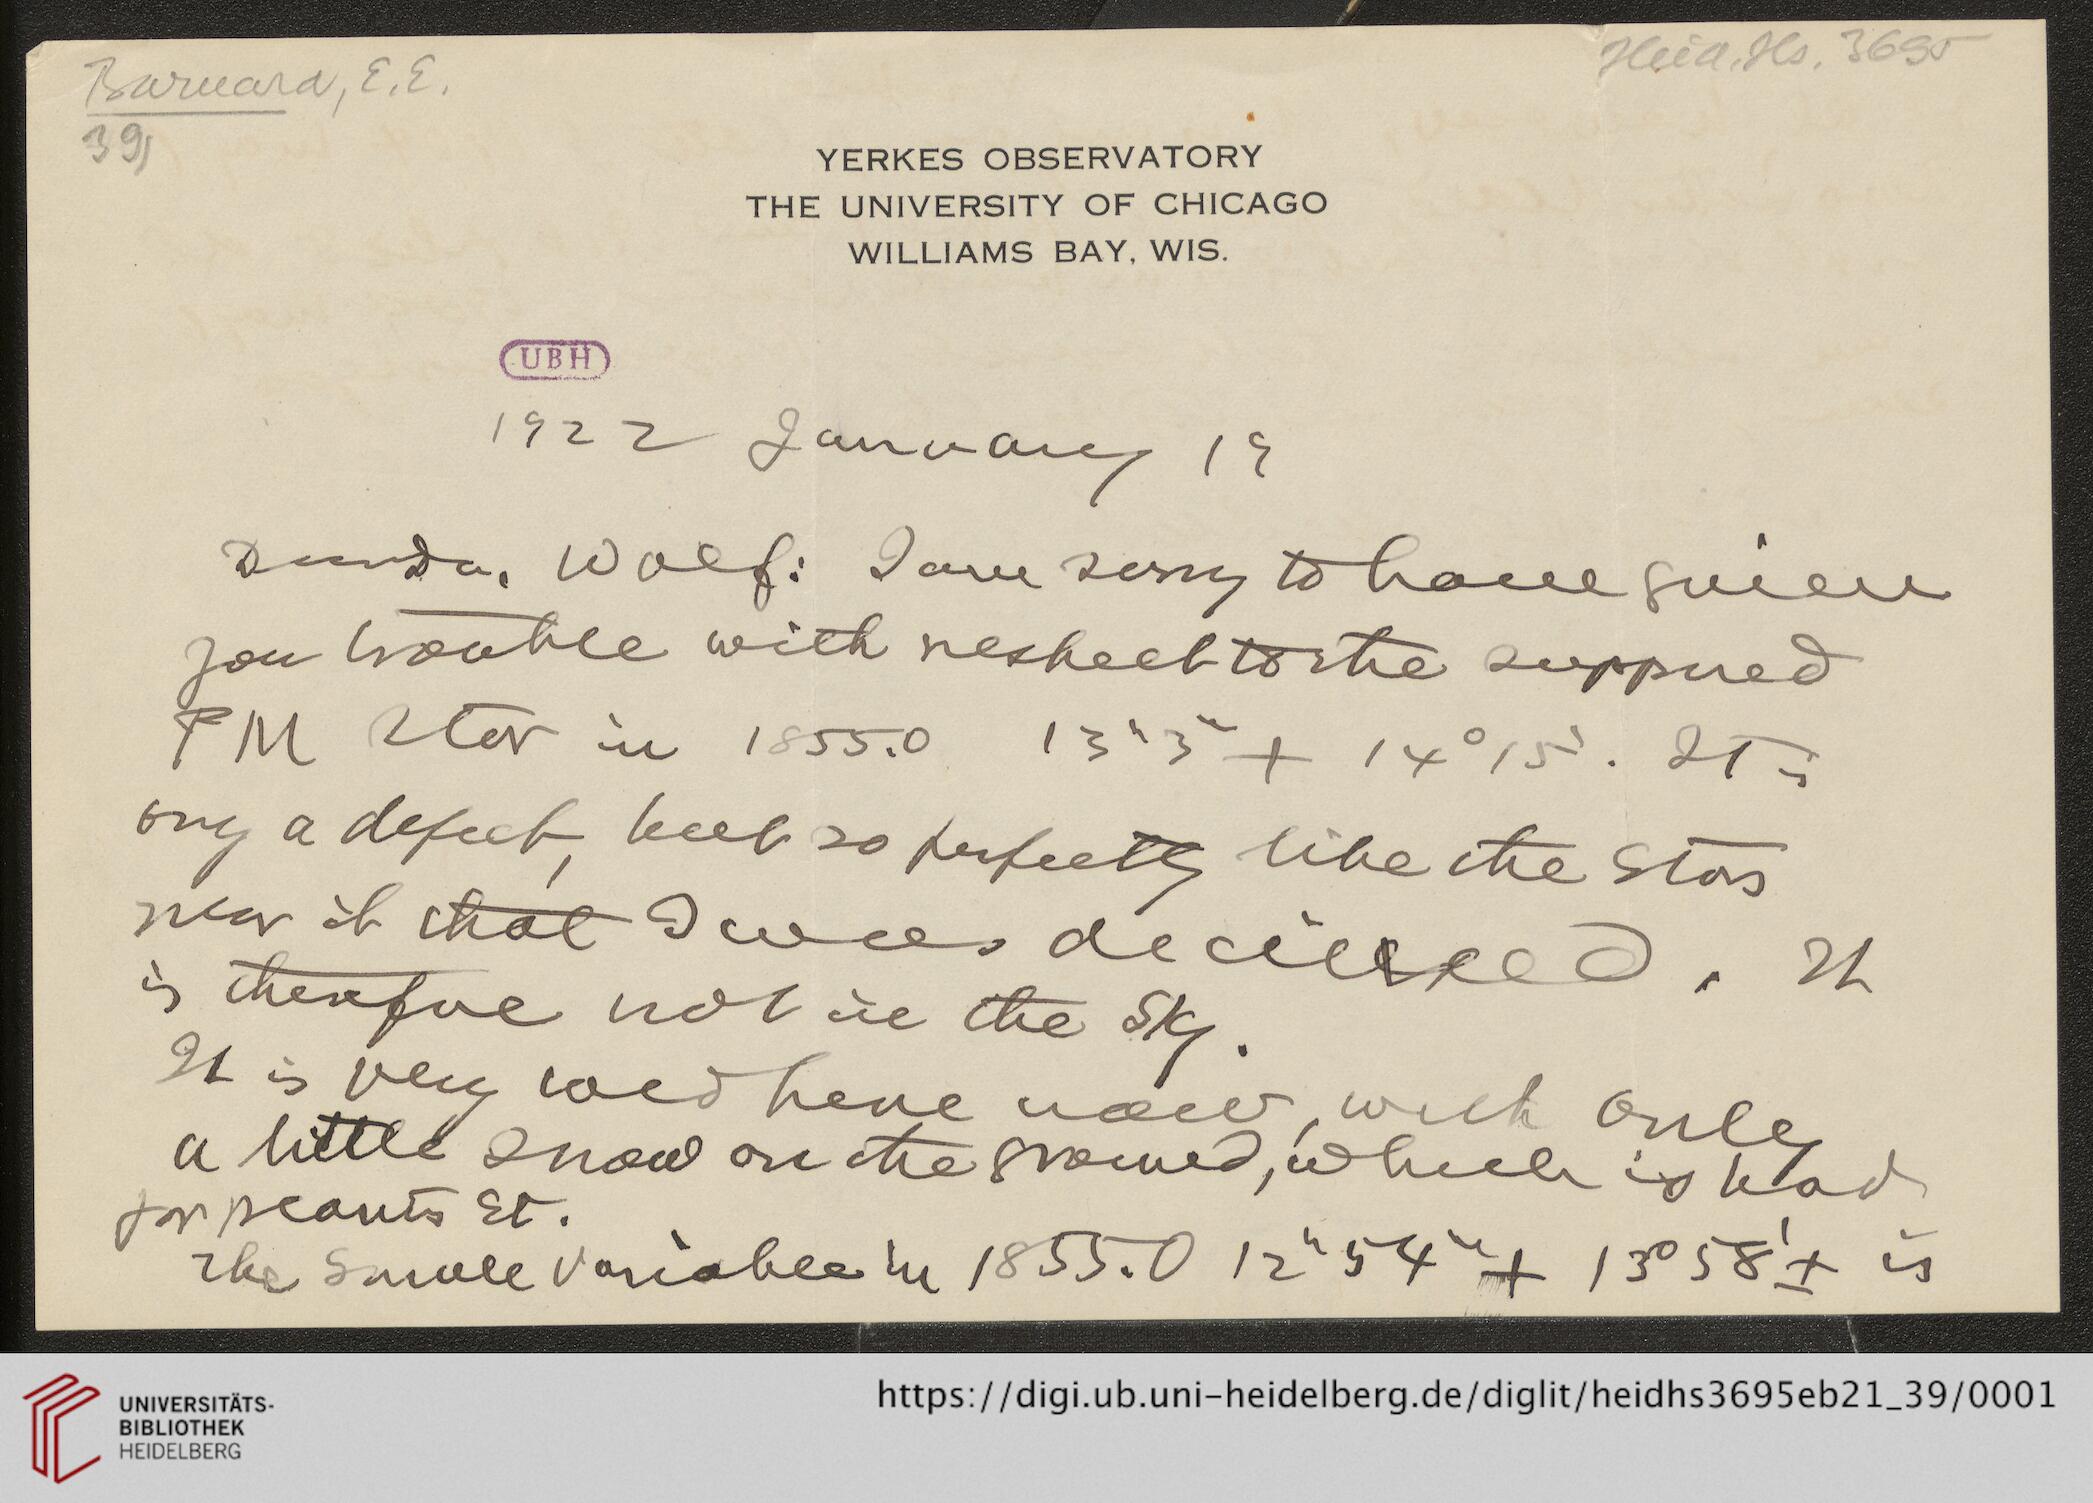 Barnard, E.E.
39,
Heid. Hs. 3695
YERKES OBSERVATORY
THE UNIVERSITY OF CHICAGO
WILLIAMS BAY, WIS.
UBH
1922 January 19
Dear Dr. Wolf: I am sorry to have given
you trouble with respect to the supposed
PM star in 1855.0 13ʰ3ᵐ + 14°15'. It is
only a defect, but so perfectly like the stars
near it that I was deceived. It
is therefore not in the sky.
It is very cold here now, with only
a little snow on the ground, which is bad
for plants etc.
The small variable in 1855.0 12ʰ54ᵐ + 13°58'± is
UNIVERSITÄTS-
BIBLIOTHEK
HEIDELBERG
https://digi.ub.uni-heidelberg.de/diglit/heidhs3695eb21_39/0001